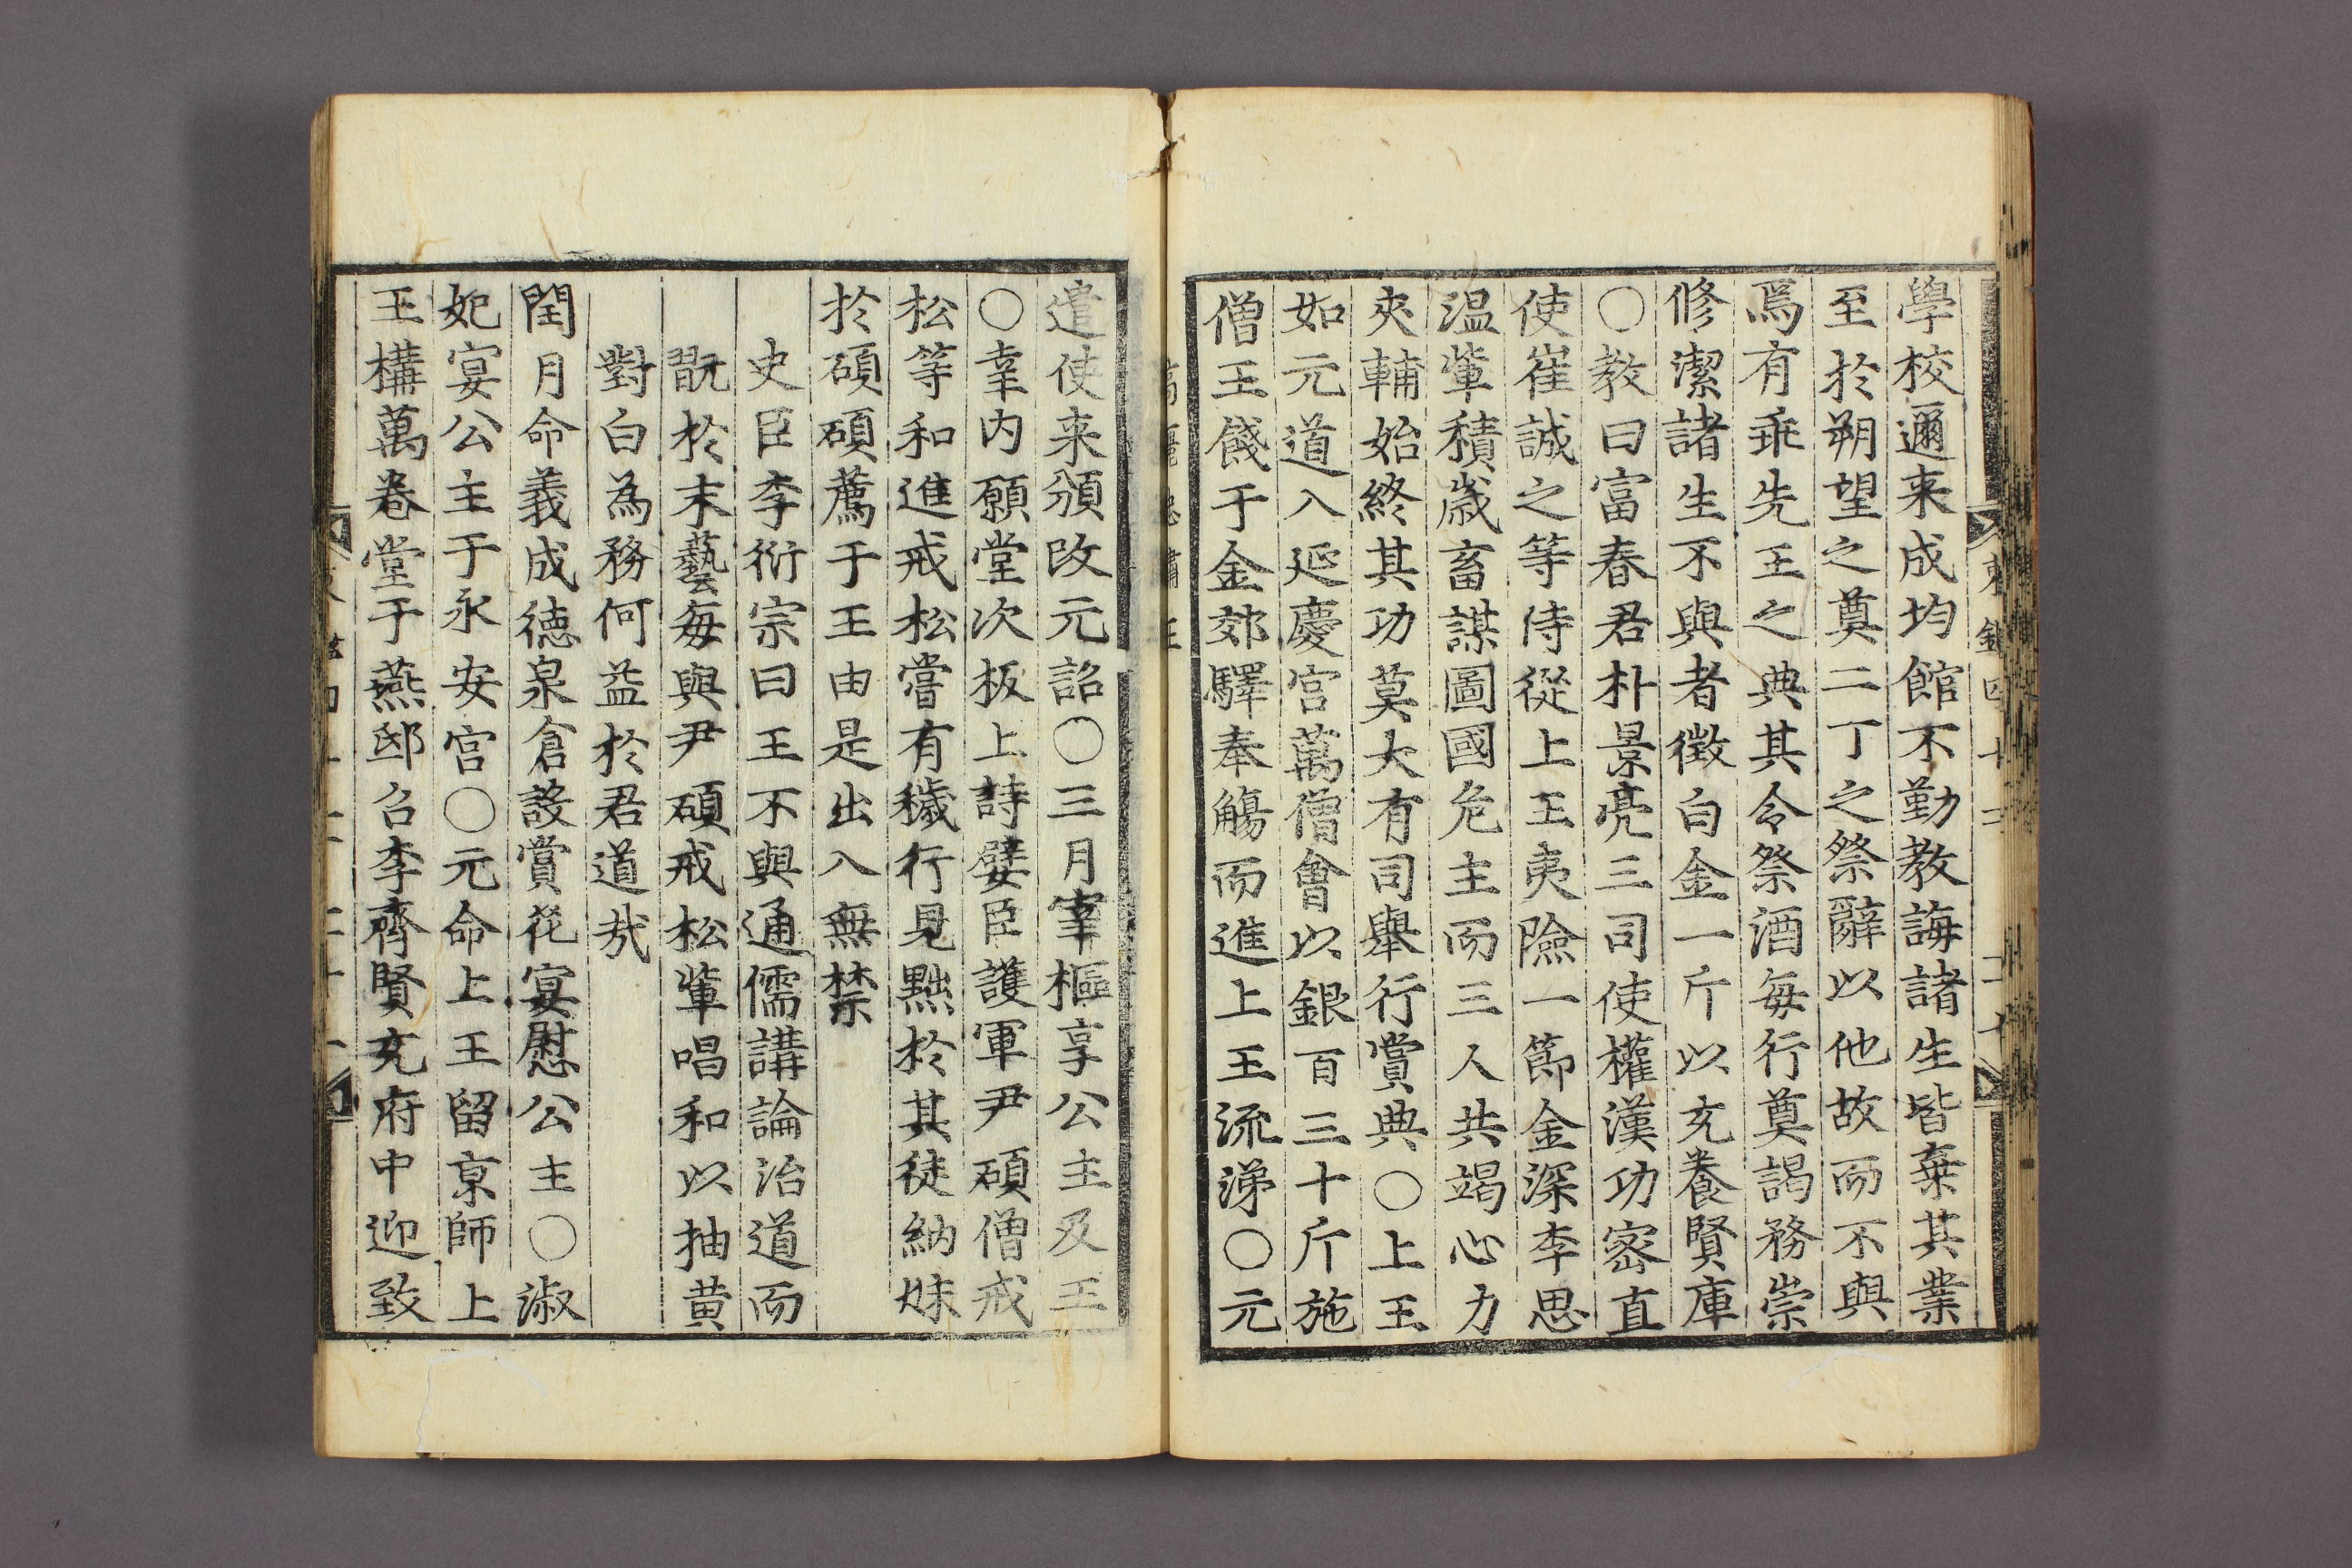 學校邇来成均館不勤教誨諸生皆棄其業
至於朔望之奠二丁之祭辭以他故而不與
焉有乖先王之典其令祭酒每行奠謁務崇
修潔諸生不與者徵白金一斤以充養賢庫
〇教曰富春君朴景亮三司使權漢功密直
使崔誠之等侍從上王夷險一節金深李思
温軰積歲畜謀圖國危主而三人共竭心力
夾輔始終其功莫大有司舉行賞典〇上王
如元道入延慶宮萬僧會以銀百三十斤施
僧王餞于金郊驛奉觴而進上王流涕〇元
遣使来頒改元詔〇三月宰樞享公主及王
〇幸内願堂次板上詩嬖臣護軍尹碩僧戒
松等和進戒松嘗有穢行見黜於其徒納妹
於碩碩薦于王由是出入無禁
史臣李衍宗曰王不與通儒講論治道而
翫於末藝每與尹碩戒松軰唱和以抽黄
對白為務何益於君道哉
閏月命義成徳泉倉設賞花宴慰公主〇淑
妃宴公主于永安宮〇元命上王留京師上
王構萬卷堂于燕邸召李齊賢充府中迎致